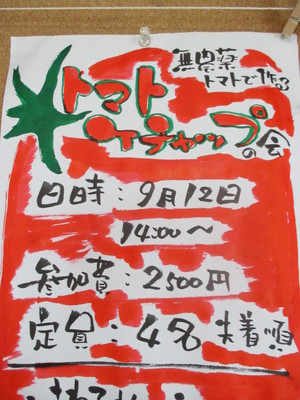 無農薬
トマトで作る
トマト
ケチャップの会
日時：9月12日
14:00〜
参加費：2500円
定員：4名 先着順